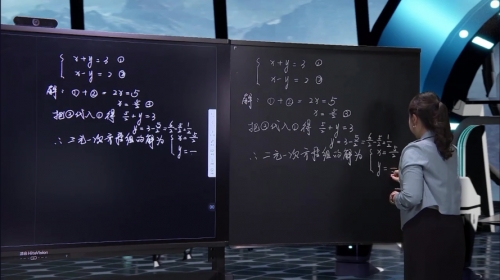 x+y=3 ①
x-y=2 ②
解：①+②= 2x=5
x=5/2 ③
把③代入①得 5/2+y=3
y=3-5/2=6/2-5/2=1/2
∴二元一次方程组的解为 { x=5/2
y=—
x+y=3 ①
x-y=2 ②
解：①+②= 2x=5
x=5/2 ③
把③代入①得 5/2+y=3
y=3-5/2=6/2-5/2=1/2
∴二元一次方程组的解为 { x=5/2
y=—